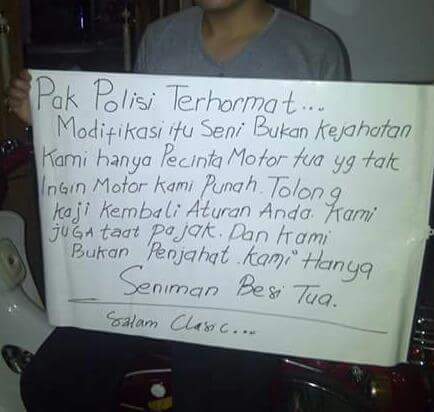 Pak Polisi Terhormat...
Modifikasi itu Seni Bukan Kejahatan
Kami hanya Pecinta Motor tua yg tak
Ingin Motor Kami Punah. Tolong
kaji Kembali Aturan Anda. Kami
JUGA taat Pajak. Dan Kami
Bukan Penjahat. Kami Hanya
Seniman Besi Tua.
Salam Clasic...